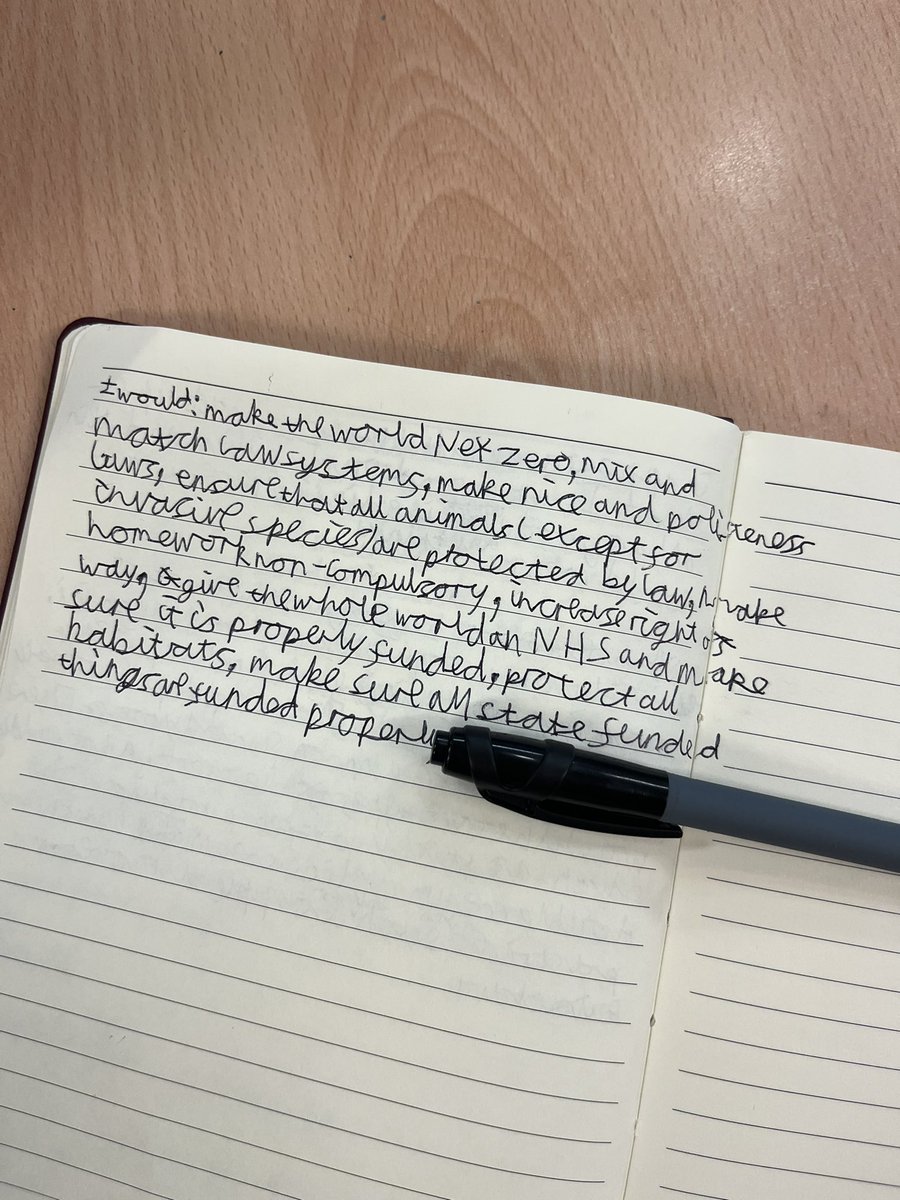 I would: make the world Net zero, mix and
match law systems, make nice and politeness
laws, ensure that all animals (except for
invacive species) are protected by law, make
homework non-compulsory, increase right of
way, give the whole world an NHS and make
sure it is properly funded, protect all
habitats, make sure all state funded
things are funded properly